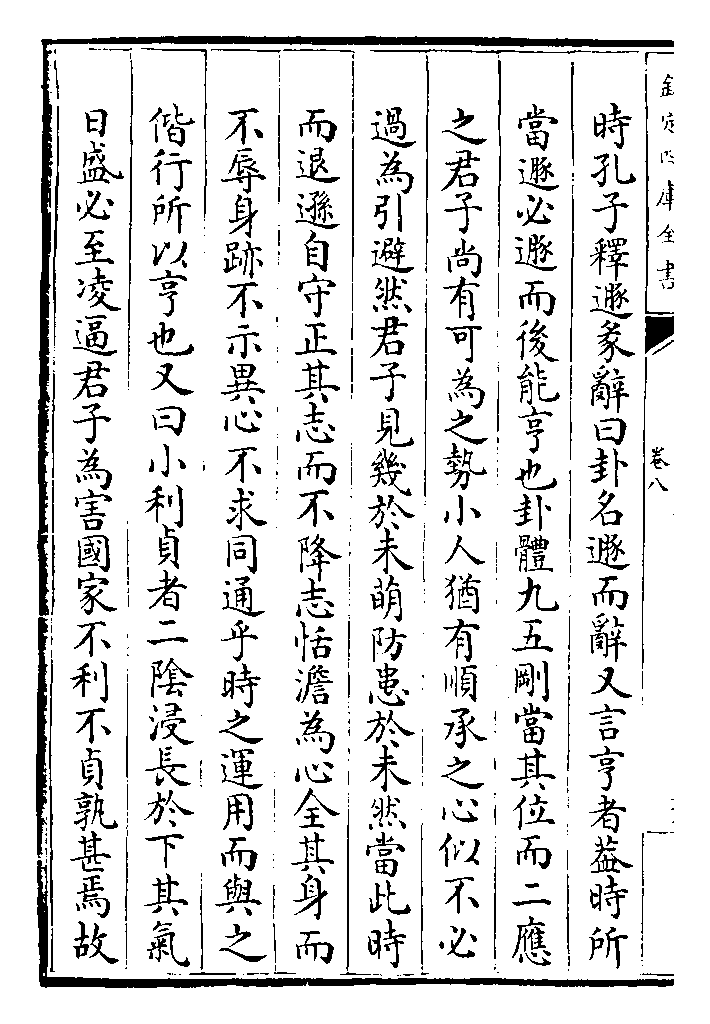 欽定四庫全書
卷八
時孔子釋遯彖辭曰卦名遯而辭又言亨者蓋時所
當遯必遯而後能亨也卦體九五剛當其位而二應
之君子尚有可為之勢小人猶有順承之心似不必
過為引避然君子見幾於未萌防患於未然當此時
而退遜自守正其志而不降志恬澹為心全其身而
不辱身跡不示異心不求同通乎時之運用而與之
偕行所以亨也又曰小利貞者二陰浸長於下其氣
日盛必至凌逼君子為害國家不利不貞孰甚焉故